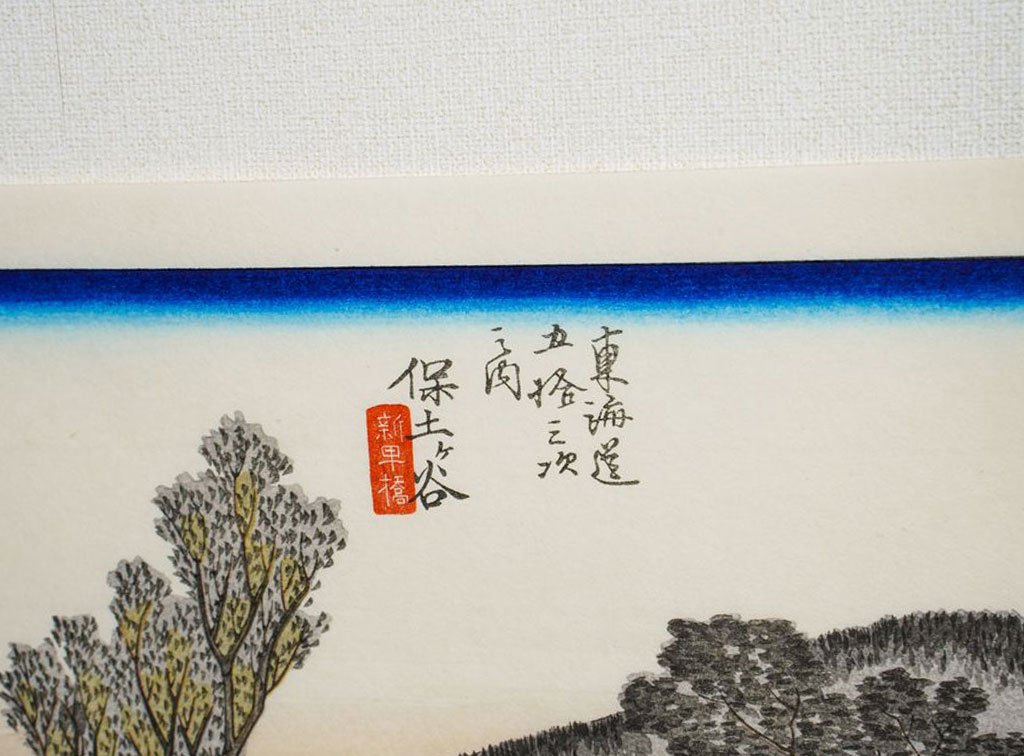 東海道
五拾三次
之内
保土ヶ谷
新甼橋